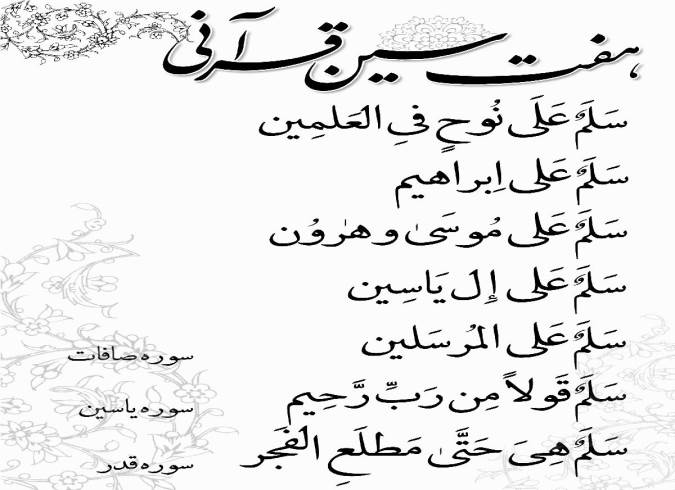 هفت سین قرآنی
سَلَمٌ عَلَی نُوحٍ فیِ العَلمِین
سَلَمٌ عَلی اِبراهیم
سَلَمٌ عَلی مُوسَیٰ و هرٰوُن
سَلَمٌ عَلی إِل یَاسِین
سَلَمٌ عَلی المُرسَلین
سوره صافات
سَلَمٌ قَولاً مِن رَبِّ رَّحِیم
سوره یاسین
سَلَمٌ هِیَ حَتَّیٰ مَطلَعِ الفَجر
سوره قدر